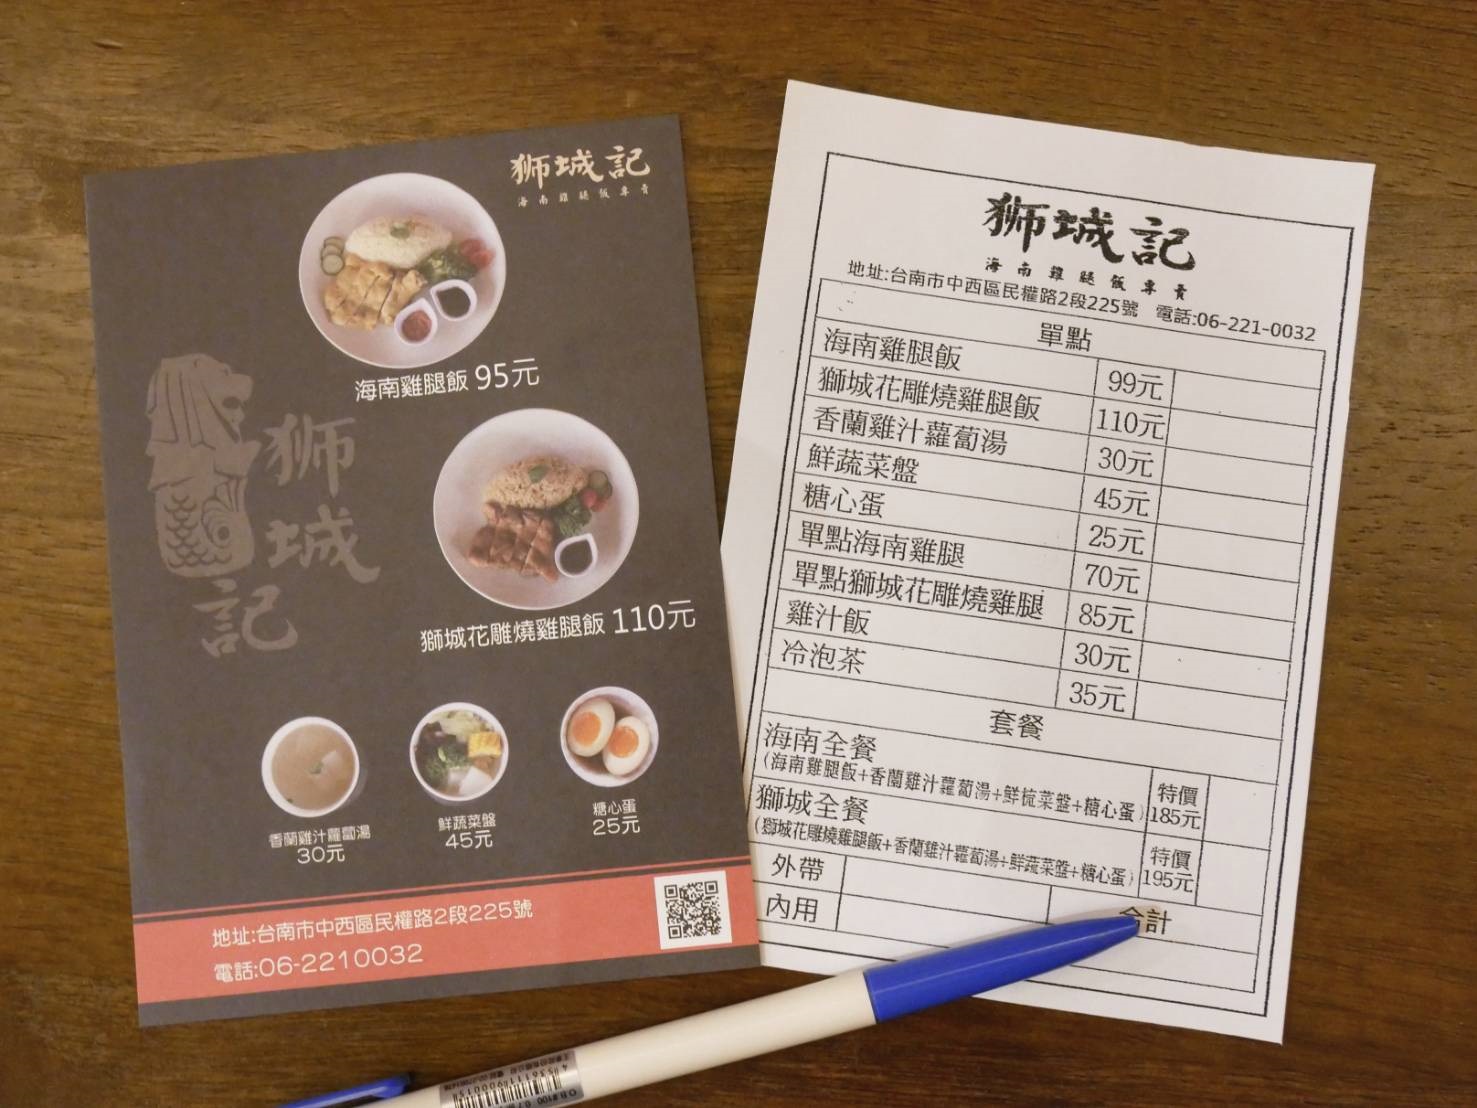 狮城記
海南雞腿飯專賣
海南雞腿飯 95元
狮城記
獅城花雕燒雞腿飯 110元
香蘭雞汁蘿蔔湯
30元
鮮蔬菜盤
45元
糖心蛋
25元
地址:台南市中西區民權路2段225號
電話:06-2210032
狮城記
海南雞腿飯專賣
地址:台南市中西區民權路2段225號 電話:06-221-0032
單點
海南雞腿飯 99元
獅城花雕燒雞腿飯 110元
香蘭雞汁蘿蔔湯 30元
鮮蔬菜盤 45元
糖心蛋 25元
單點海南雞腿 70元
單點獅城花雕燒雞腿 85元
雞汁飯 30元
冷泡茶 35元
套餐
海南全餐
(海南雞腿飯+香蘭雞汁蘿蔔湯+鮮蔬菜盤+糖心蛋)
特價
185元
獅城全餐
(獅城花雕燒雞腿飯+香蘭雞汁蘿蔔湯+鮮蔬菜盤+糖心蛋)
特價
195元
外帶
內用
合計